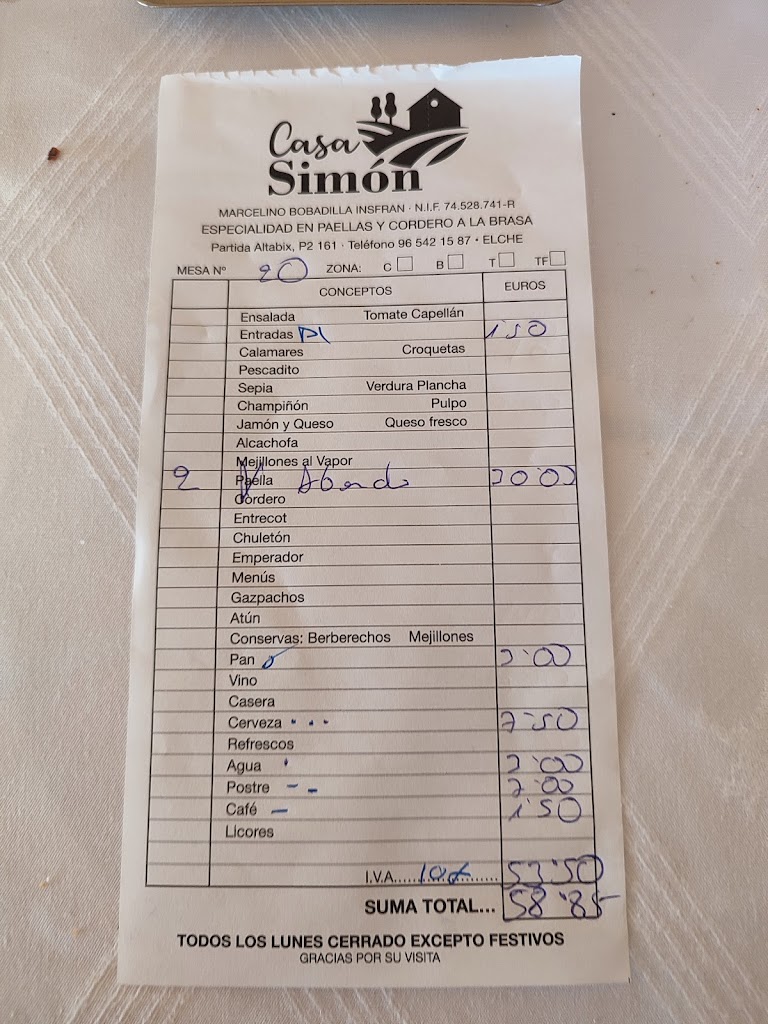 Casa
Simón
MARCELINO BOBADILLA INSFRAN · N.I.F. 74.528.741-R
ESPECIALIDAD EN PAELLAS Y CORDERO A LA BRASA
Partida Altabix, P2 161 · Teléfono 96 542 15 87 · ELCHE
MESA Nº 20 ZONA: C B T TF
CONCEPTOS EUROS
Ensalada Tomate Capellán
Entradas 1'50
Calamares Croquetas
Pescadito
Sepia Verdura Plancha
Champiñón Pulpo
Jamón y Queso Queso fresco
Alcachofa
Mejillones al Vapor
2 Paella 30'00
Cordero
Entrecot
Chuletón
Emperador
Menús
Gazpachos
Atún
Conservas: Berberechos Mejillones
Pan 3'00
Vino
Casera
Cerveza 7'50
Refrescos
Agua 3'00
Postre 7'00
Café 1'50
Licores
I.V.A. 10% 53'50
SUMA TOTAL... 58'85
TODOS LOS LUNES CERRADO EXCEPTO FESTIVOS
GRACIAS POR SU VISITA